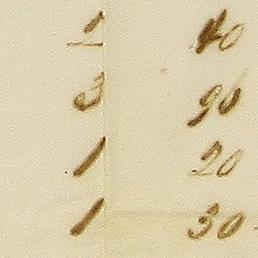 2 40
3 90
1 20
1 30